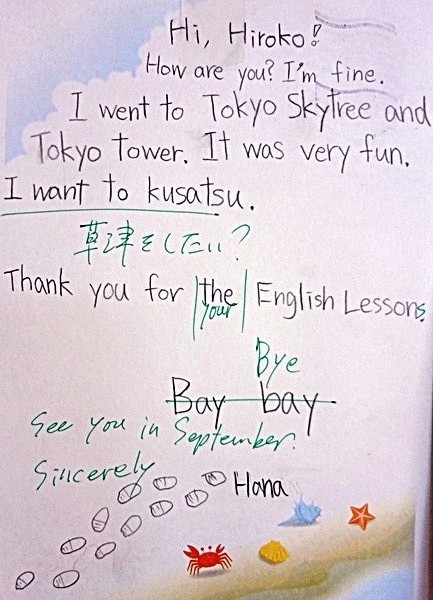 Hi, Hiroko!
How are you? I'm fine.
I went to Tokyo Skytree and
Tokyo tower. It was very fun.
I want to kusatsu.
草津をしたい?
Thank you for the English Lessons.
your
Bye
Bay bay
See you in September.
Sincerely
Hana